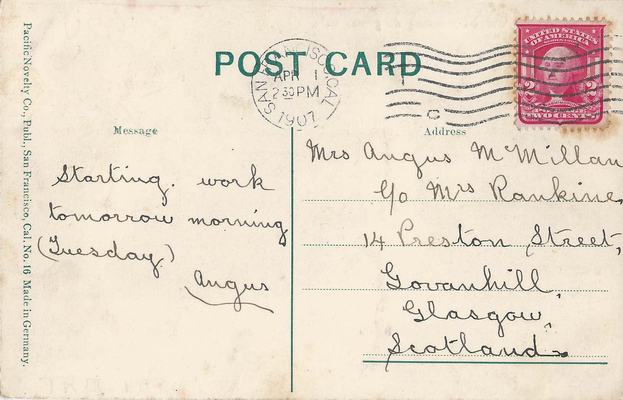 POST CARD
SAN FRANCISCO, CAL.
APR 1
2 30 PM
1907
C
UNITED STATES
OF AMERICA
2 2
TWO CENTS
Pacific Novelty Co., Publ., San Francisco, Cal. No. 16 Made in Germany.
Message
Starting work
tomorrow morning
(Tuesday)
Angus
Address
Mrs Angus McMillan
c/o Mrs Rankine,
14 Preston Street,
Govanhill,
Glasgow,
Scotland.